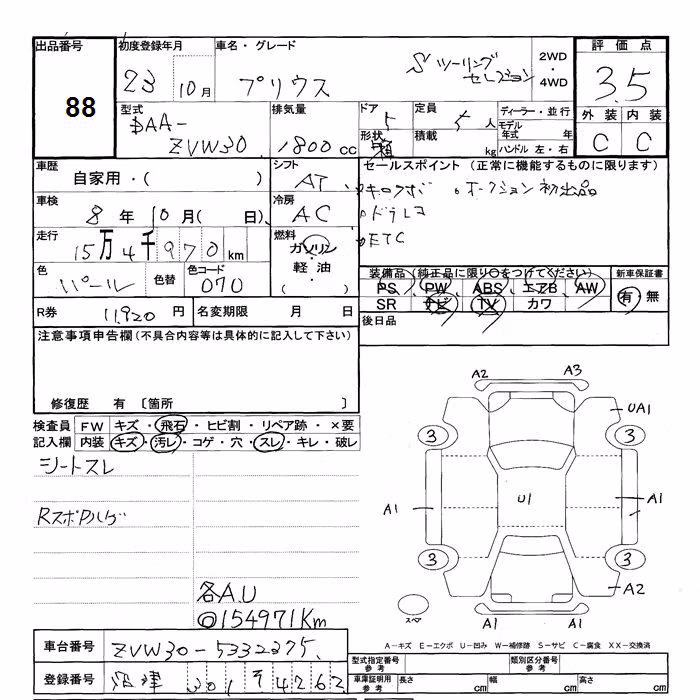 出品番号 初度登録年月 車名・グレード 評価点
88 23 10月 プリウス Sツーリング セレクション 2WD・4WD 3.5
外装 内装
C C
型式 排気量 ドア 定員 ディーラー・並行
DAA- 5 5人 モデル年式 年
ZVW30 1800cc 形状 積載 kg ハンドル 左・右
車歴 シフト セールスポイント (正常に機能するものに限ります)
自家用・( ) AT 。オークション初出品
車検 冷房 ドラレコ
8年10月( 日) AC ETC
走行 燃料
15万4千970km ガソリン・軽油( )
色 色替 色コード 装備品(純正品に限り○をつけてください) 新車保証書
パール 070 PS PW ABS エアB AW 有・無
SR ナビ TV カワ
R券 11,920円 名変期限 月 日 後日品
注意事項申告欄(不具合内容等は具体的に記入して下さい)
修復歴 有 〔箇所 〕
検査員記入欄 FW キズ・飛石・ヒビ割・リペア跡・×要
内装 キズ・汚レ・コゲ・穴・スレ・キレ・破レ
シートスレ
各A.U
◎154971Km
A2 A3
UA1
3 3
A1 U1 A1
3 3
A2
スペア A1 A1
A-キズ E-エクボ U-凹み W-補修跡 S-サビ C-腐食 XX-交換済
車台番号 ZVW30-5332375
型式指定番号 参考 類別区分番号 参考
登録番号 沼津 301 そ 4262
車庫証明用 参考 長さ cm 幅 cm 高さ cm